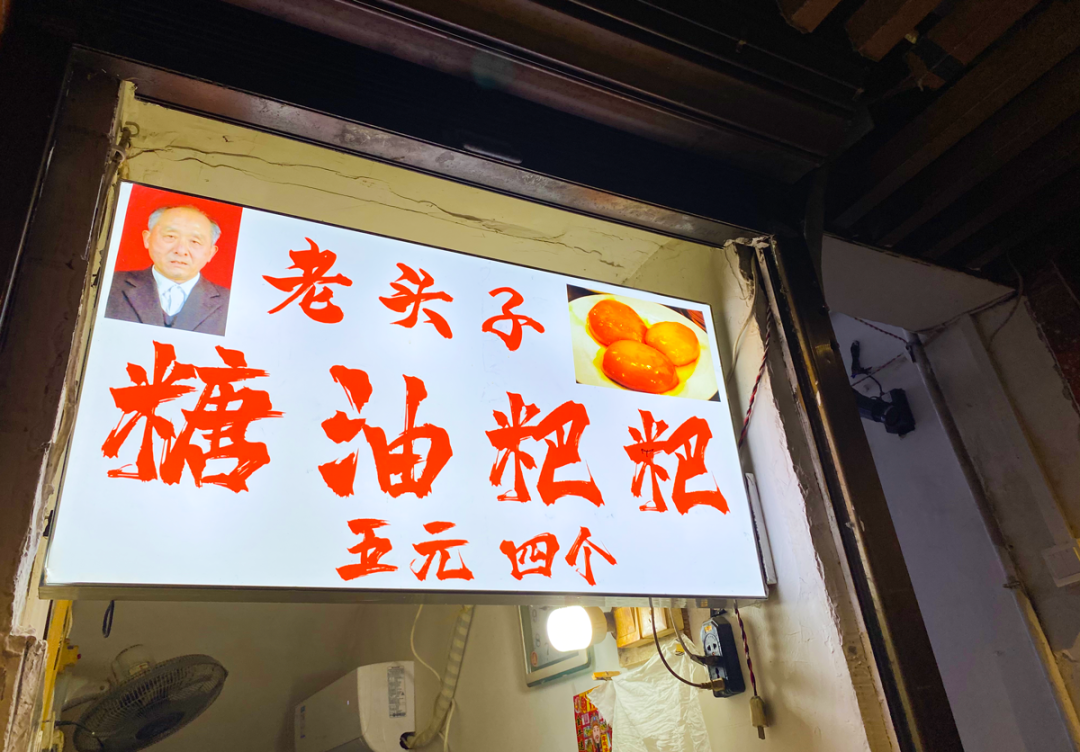 老头子
糖油粑粑
五元 四个